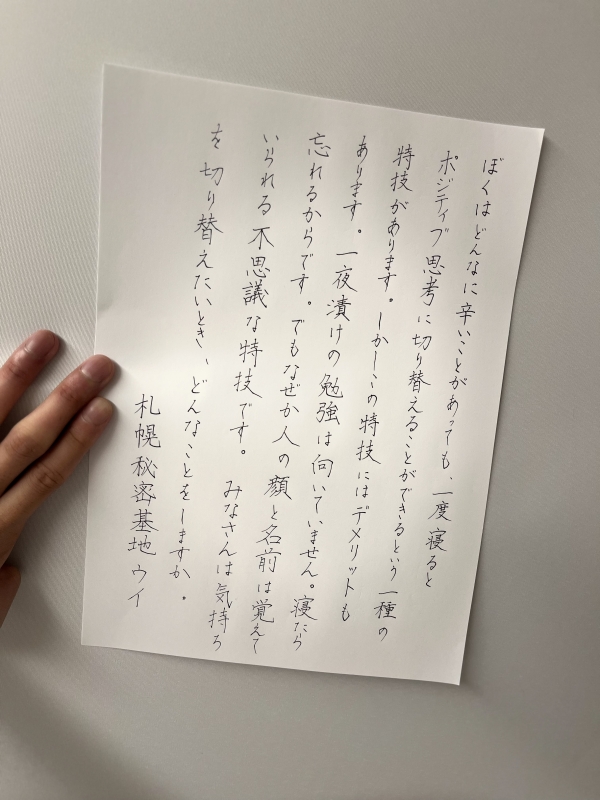 ぼくはどんなに辛いことがあっても、一度寝ると
ポジティブ思考に切り替えることができるという一種の
特技があります。しかしこの特技にはデメリットも
あります。一夜漬けの勉強は向いていません。寝たら
忘れるからです。でもなぜか人の顔と名前は覚えて
いられる不思議な特技です。 みなさんは気持ち
を切り替えたいとき、どんなことをしますか。
札幌秘密基地 ウイ